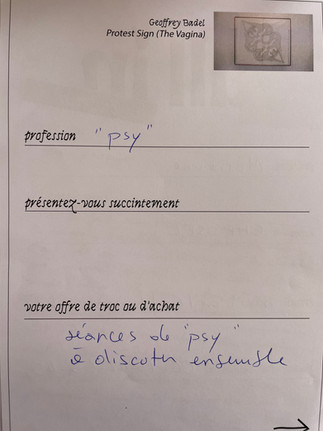 Geoffrey Badel
Protest Sign (The Vagina)
profession "psy"
présentez-vous succintement
votre offre de troc ou d'achat
séances de "psy"
à discuter ensemble